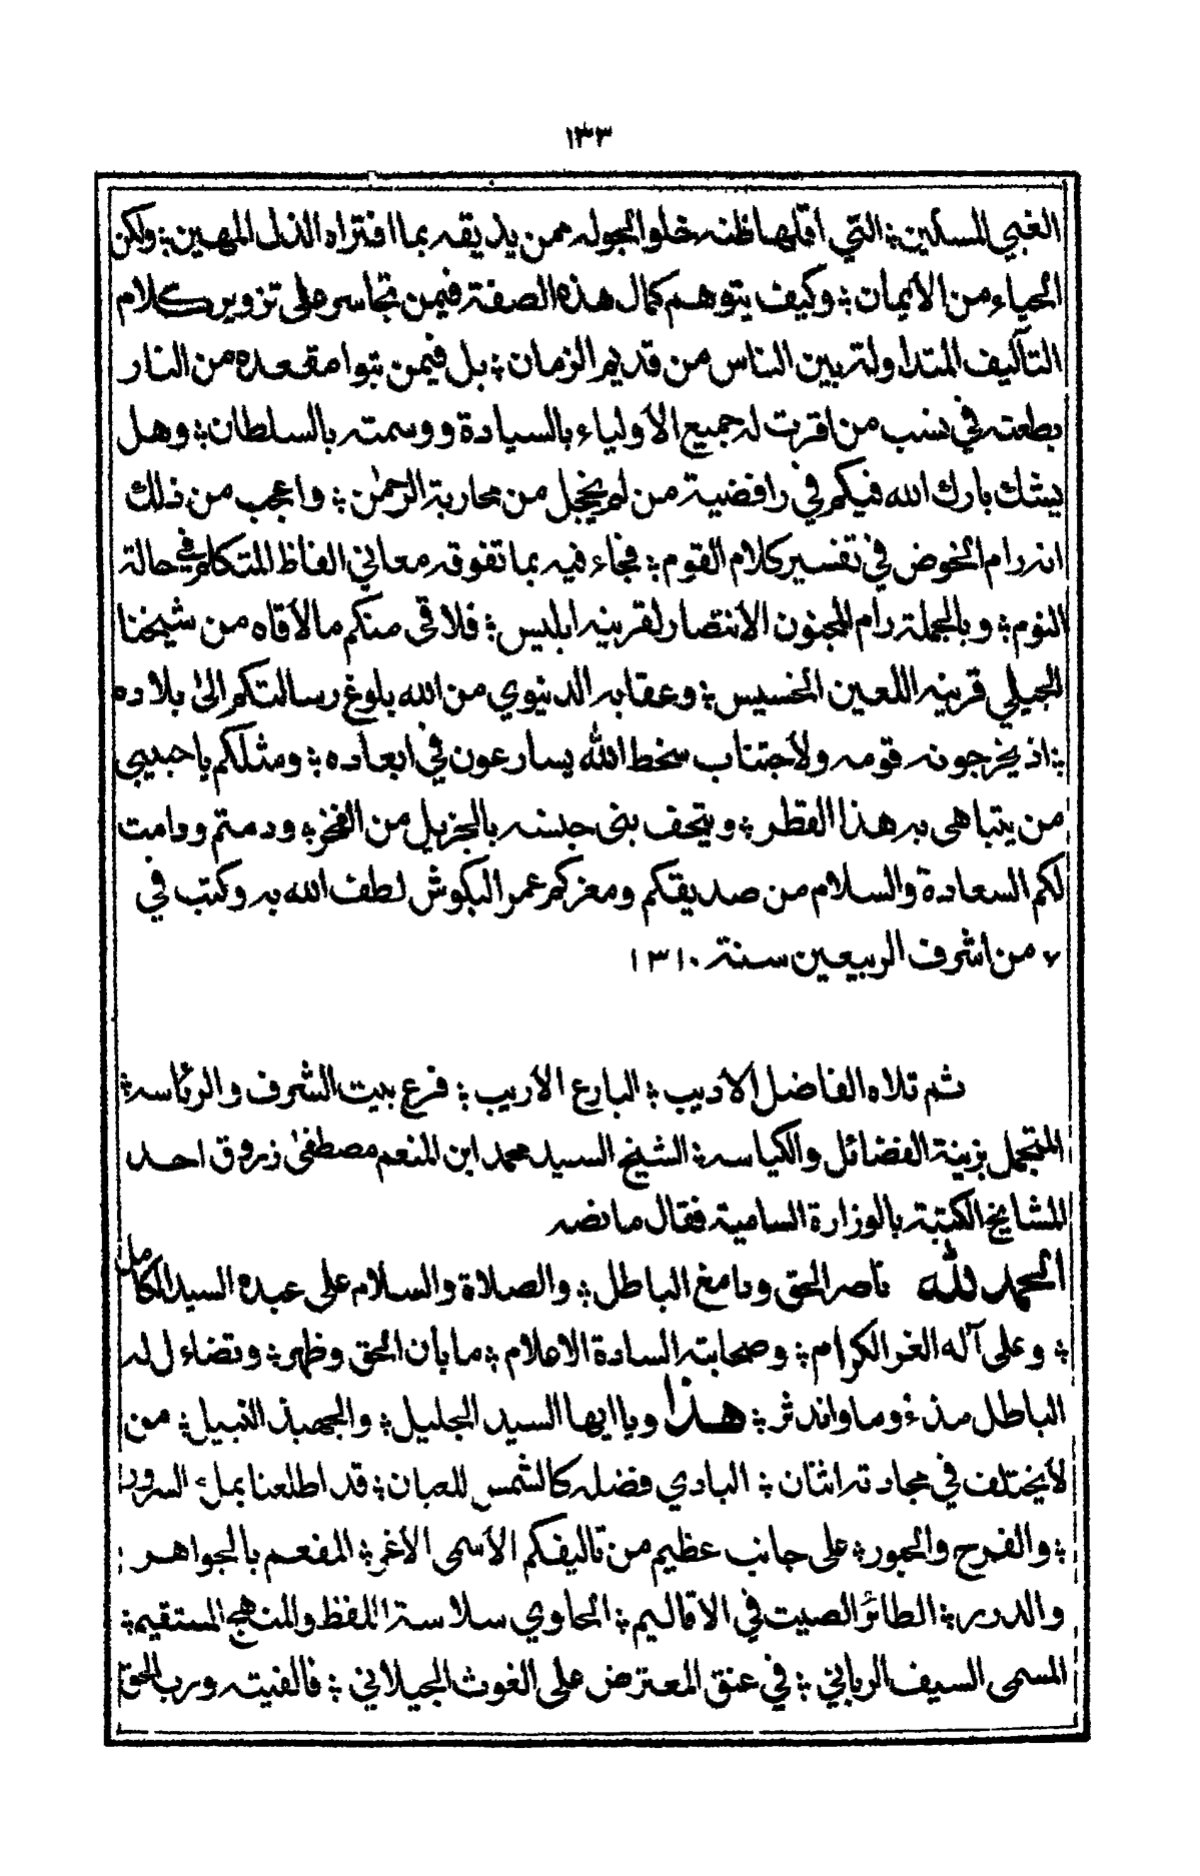 ١٣٣
الغبي المسكين؞ التي اقلها ظنه خلو المجوله ممن يذيقه بما افتراه الذل المهين؞ ولكن
الحياء من الأيمان؞ وكيف يتوهم كمال هذه الصفة فيمن تجاسر على تزوير كلام
التآليف المتداولة بين الناس من قديم الزمان؞ بل فيمن تبوا مقعده من النار
بطعنه في نسب من اقرت له جميع الأولياء بالسيادة ووسمته بالسلطان؞ وهل
يشك بارك الله فيكم في رافضية من لم يخجل من محاربة الرحمٰن؞ واعجب من ذلك
انه رام الخوض في تفسير كلام القوم؞ فجاء فيه بما تفوقه معاني الفاظ المتكلم في حالة
النوم؞ وبالجملة رام المجنون الأنتصار لقرينه ابليس؞ فلاقى منكم ما لاقاه من شيخنا
الجيلي قرينه اللعين الخسيس؞ وعقابه الدنيوي من الله بلوغ رسالتكم الى بلاده
؞ اذ يخرجونه قومه ولأجتناب سخط الله يسارعون في ابعاده؞ ومثلكم يا حبيبي
من يتباهى به هذا القطر؞ ويتحف بنى جنسه بالجزيل من الفخر؞ ودمتم ودامت
لكم السعادة والسلام من صديقكم ومعزكم عمر البكوش لطف الله به وكتب في
٧ من اشرف الربيعين سنة ١٣١٠
ثم تلاه الفاضل الأديب؞ البارع الأريب؞ فرع بيت الشرف والرئاسه؞
المتجمل بزينة الفضائل والكياسه؞ الشيخ السيد محمد ابن المنعم مصطفىٰ زروق احد
المشايخ الكتبة بالوزارة السامية فقال ما نصه
الحمد لله ناصر الحق ودامغ الباطل؞ والصلاة والسلام على عبده السيد الكامل
؞ وعلى آله الغر الكرام؞ وصحابته السادة الاعلام؞ ما بأن الحق وظهر؞ وتضاءل له
الباطل مذءوما واندثر؞ هذا ويا ايها السيد الجليل؞ والجهبذ النبيل؞ من
لأيختلف في مجادته اثنان؞ البادي فضله كالشمس للعيان؞ قد اطلعنا بملء السرور
؞ والفرح والحبور؞ على جانب عظيم من تاليفكم الأسمى الأغر؞ المفعم بالجواهر
والدرر؞ الطائر الصيت في الاقاليم؞ الحاوي سلاسة اللفظ والمنهج المستقيم؞
المسمى السيف الرباني؞ في عنق المعترض على الغوث الجيلاني؞ فالفيته ورب الحق